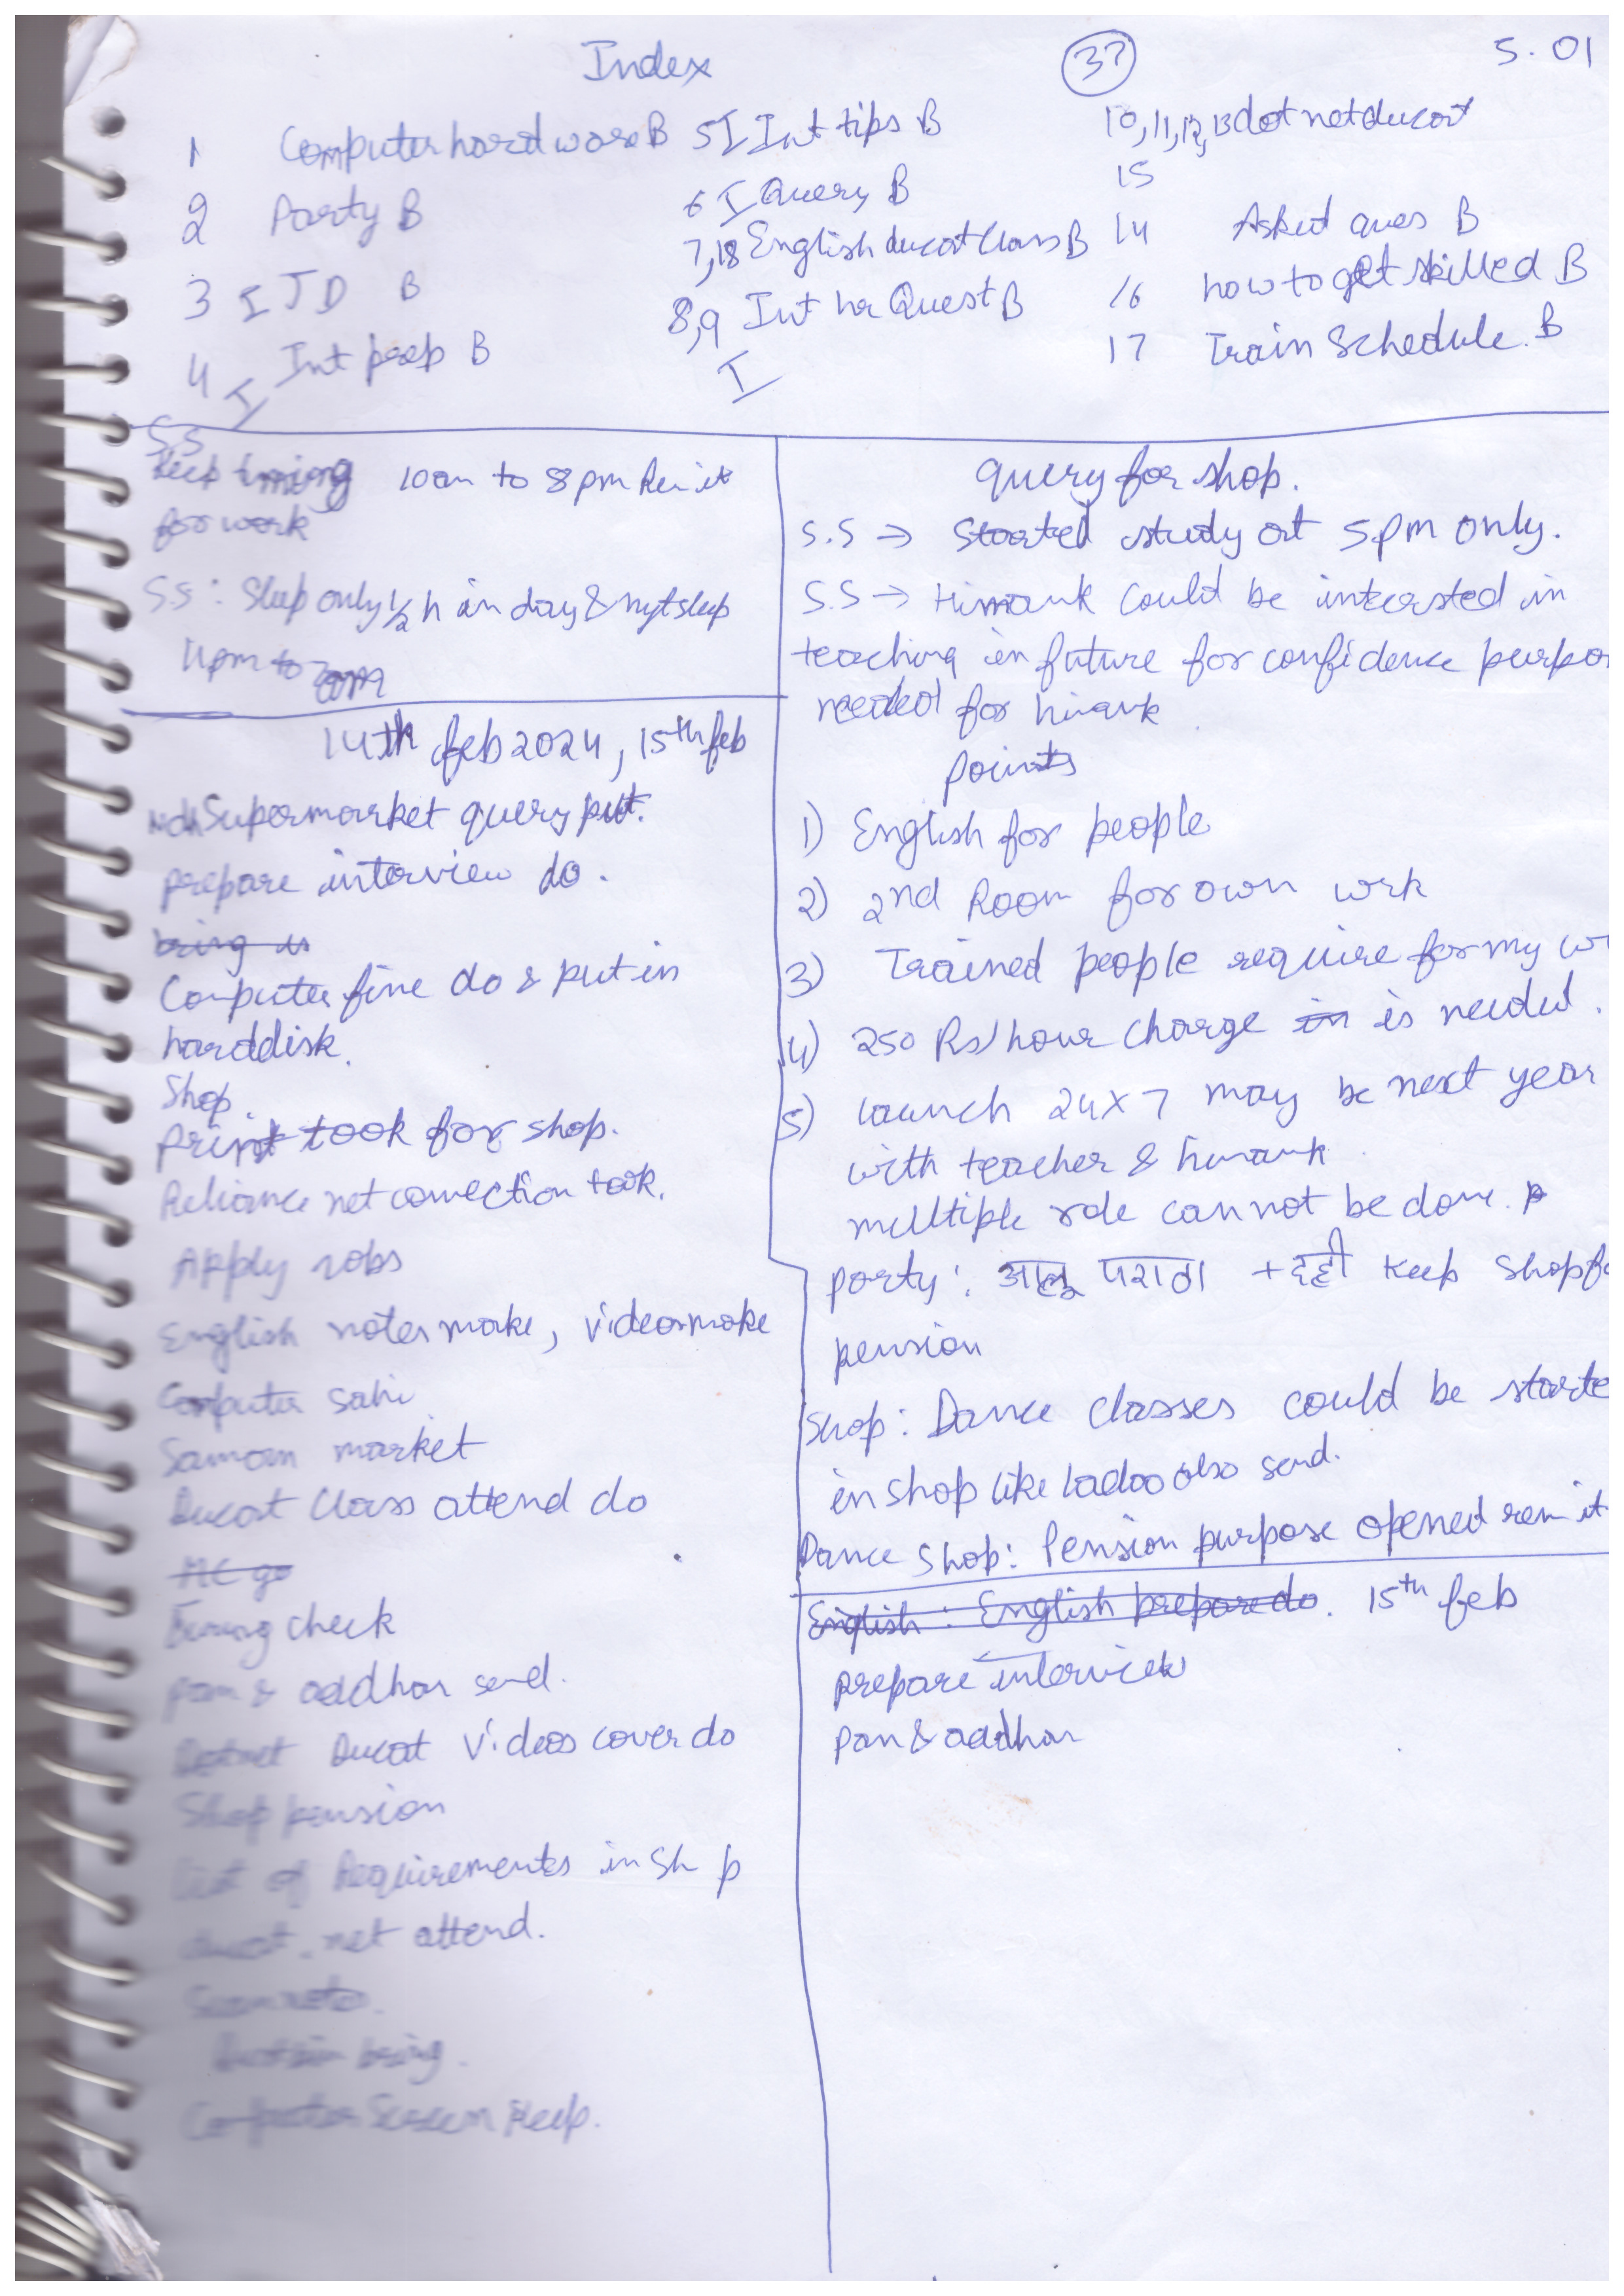 Index
37
5.01
1 Computer hardware B
2 Party B
3 I JD B
4 I Int prep B
5 I Int tips B
6 I Query B
7,18 English ducat class B
8,9 Int hr Quest B
I
10,11,12,13 dot net ducat
15
14 Asked ques B
16 how to get skilled B
17 Train Schedule. B
S.S
Keep timing 10am to 8pm Rem it
for work
S.S: Sleep only 1/2 h in day & nyt sleep
11pm to 7am
14th feb 2024, 15th feb
Supermarket query put.
prepare interview do.
bring
Computer fine do & put in
harddisk.
Shop.
print took for shop.
Reliance net connection took.
Apply jobs
English notes make, videos make
Computer sahi
Samaan market
Ducat Class attend do
MC go
Turing check
pan & aadhar send.
Dotnet Ducat Videos cover do
Shop pension
List of Requirements in Sh p
ducat .net attend.
bring.
Computer Screen Keep.
query for shop.
S.S → Started study at 5pm only.
S.S → Himank Could be interested in
teaching in future for confidence purpo
needed for himank
points
1) English for people
2) 2nd Room for own wrk
3) Trained people require for my w
4) 250 Rs/hour charge in is needed.
5) launch 24x7 may be next year
with teacher & himank.
multiple role cannot be done. p
party: आलू पराठा + दही Keep Shop f
pension
Shop: Dance classes could be starte
in shop like ladoo also send.
Dance Shop: Pension purpose opened rem it
English: English prepare do. 15th feb
prepare interview
pan & aadhar